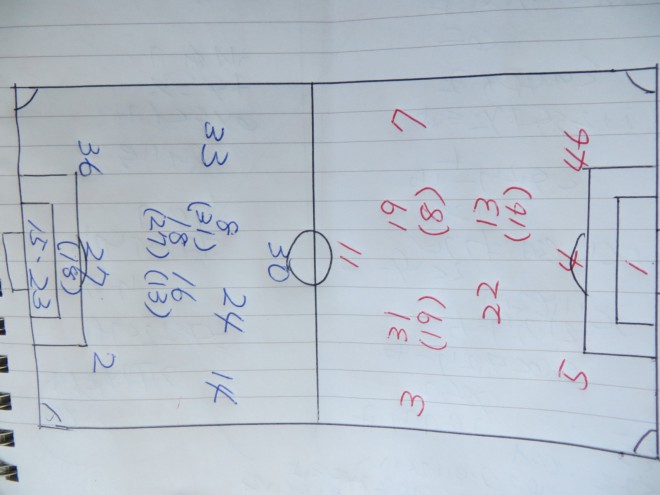 1
46
4
5
13
22
7
(8)
3
11
30
33
8
(31)
18
(27)
16
(13)
24
14
36
27
(18)
2
15-23